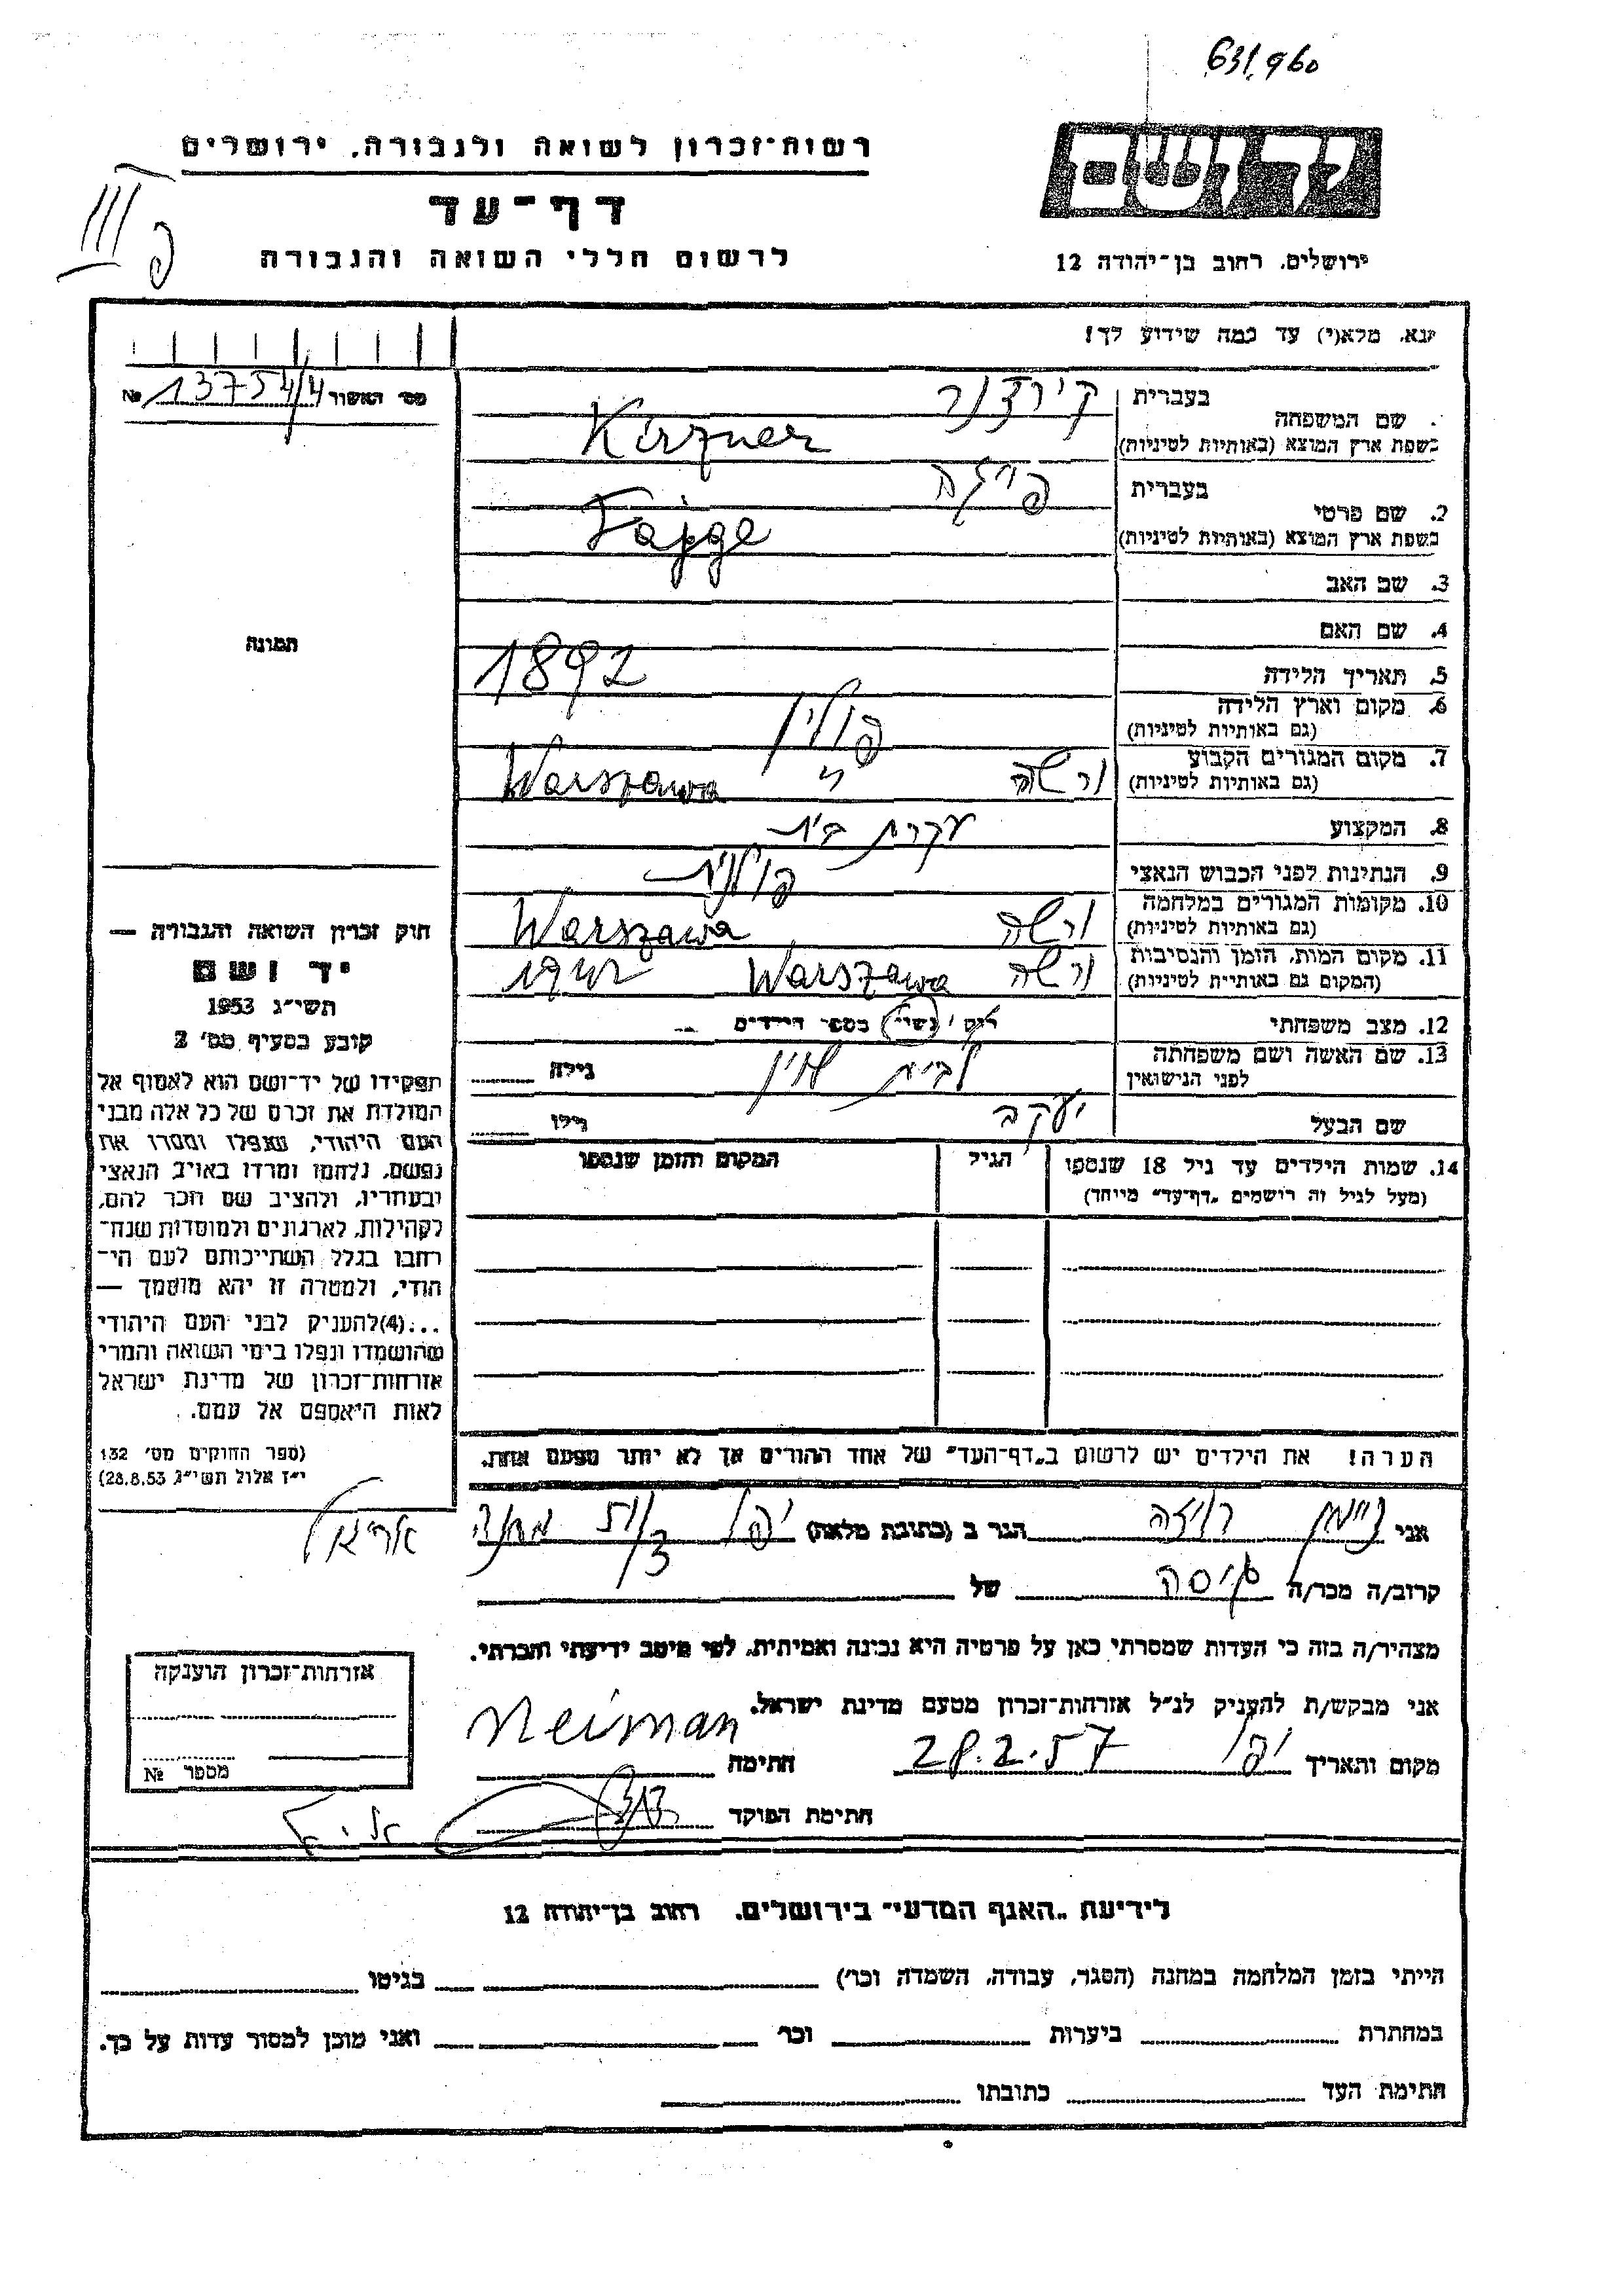 631960
רשות־זכרון לשואה ולגבורה. ירושלים
דף־עד
לרשום חללי השואה והגבורה
ירושלים. רחוב בן־יהודה 12
III
פ
נא. מלא(י) עד כמה שידוע לך!
מס׳ האשור № 13754/4
בעברית קירזנר
שם המשפחה
בשפת ארץ המוצא (באותיות לטיניות) Kirzner
בעברית פייגה
2. שם פרטי
בשפת ארץ המוצא (באותיות לטיניות) Fajge
3. שם האב
4. שם האם
תמונה
5. תאריך הלידה 1892
6. מקום וארץ הלידה פולין
(גם באותיות לטיניות)
7. מקום המגורים הקבוע ורשה " Warszawa
(גם באותיות לטיניות)
8. המקצוע עקרת בית
9. הנתינות לפני הכבוש הנאצי פולנית
10. מקומות המגורים במלחמה ורשה Warszawa
(גם באותיות לטיניות)
11. מקום המות, הזמן והנסיבות ורשה Warszawa 1942
(המקום גם באותיית לטיניות)
12. מצב משפחתי נשוי מספר הילדים
13. שם האשה ושם משפחתה לבית גילה
לפני הנישואין
שם הבעל יעקב גילו
14. שמות הילדים עד גיל 18 שנספו הגיל המקום והזמן שנספו
(מעל לגיל זה רושמים „דף־עד" מייחד)
הערה! את הילדים יש לרשום ב„דף־העד" של אחד ההורים אך לא יותר מפעם אחת.
חוק זכרון השואה והגבורה —
יד ושם
תשי״ג 1953
קובע בסעיף מס׳ 2
תפקידו של יד־ושם הוא לאסוף אל
המולדת את זכרם של כל אלה מבני
העם היהודי, שנפלו ומסרו את
נפשם, נלחמו ומרדו באויב הנאצי
ובעוזריו, ולהציב שם וזכר להם,
לקהילות, לארגונים ולמוסדות שנח־
רבו בגלל השתייכותם לעם הי־
הודי, ולמטרה זו יהא מוסמך —
...(4)להעניק לבני העם היהודי
שהושמדו ונפלו בימי השואה והמרי
אזרחות־זכרון של מדינת ישראל
לאות היאספם אל עמם.
(ספר החוקים מס׳ 132
י״ז אלול תשי״ג 28.8.53)
אני ניימן רויזה הגר ב (כתובת מלאה) יפו
קרוב/ה מכר/ה גיסה של
מצהיר/ה בזה כי העדות שמסרתי כאן על פרטיה היא נכונה ואמיתית, לפי מיטב ידיעתי והכרתי.
אני מבקש/ת להעניק לנ״ל אזרחות־זכרון מטעם מדינת ישראל.
מקום ותאריך יפו 28.2.57 חתימה Neiman
חתימת הפוקד
אזרחות־זכרון הוענקה
מספר №
לידיעת „האגף המדעי" בירושלים. רחוב בן־יהודה 12
הייתי בזמן המלחמה במחנה (הסגר, עבודה, השמדה וכו׳) בגיטו
במחתרת ביערות וכו׳ ואני מוכן למסור עדות על כך.
חתימת העד כתובתו